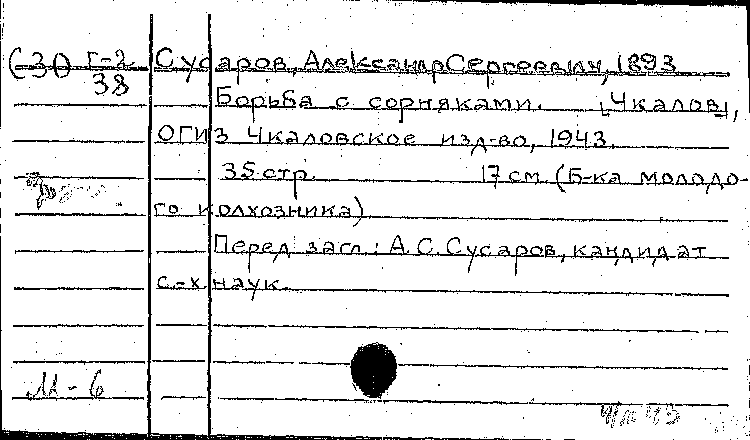 (-30) г-2 Сусаров, Александр Сергеевич, 1893
38
Борьба с сорняками. [Чкалов],
ОГИЗ Чкаловское изд-во, 1943.
35 стр. 17 см (Б-ка молодо-
го колхозника)
Перед загл.: А.С. Сусаров, кандидат
с.-х. наук.
М-6